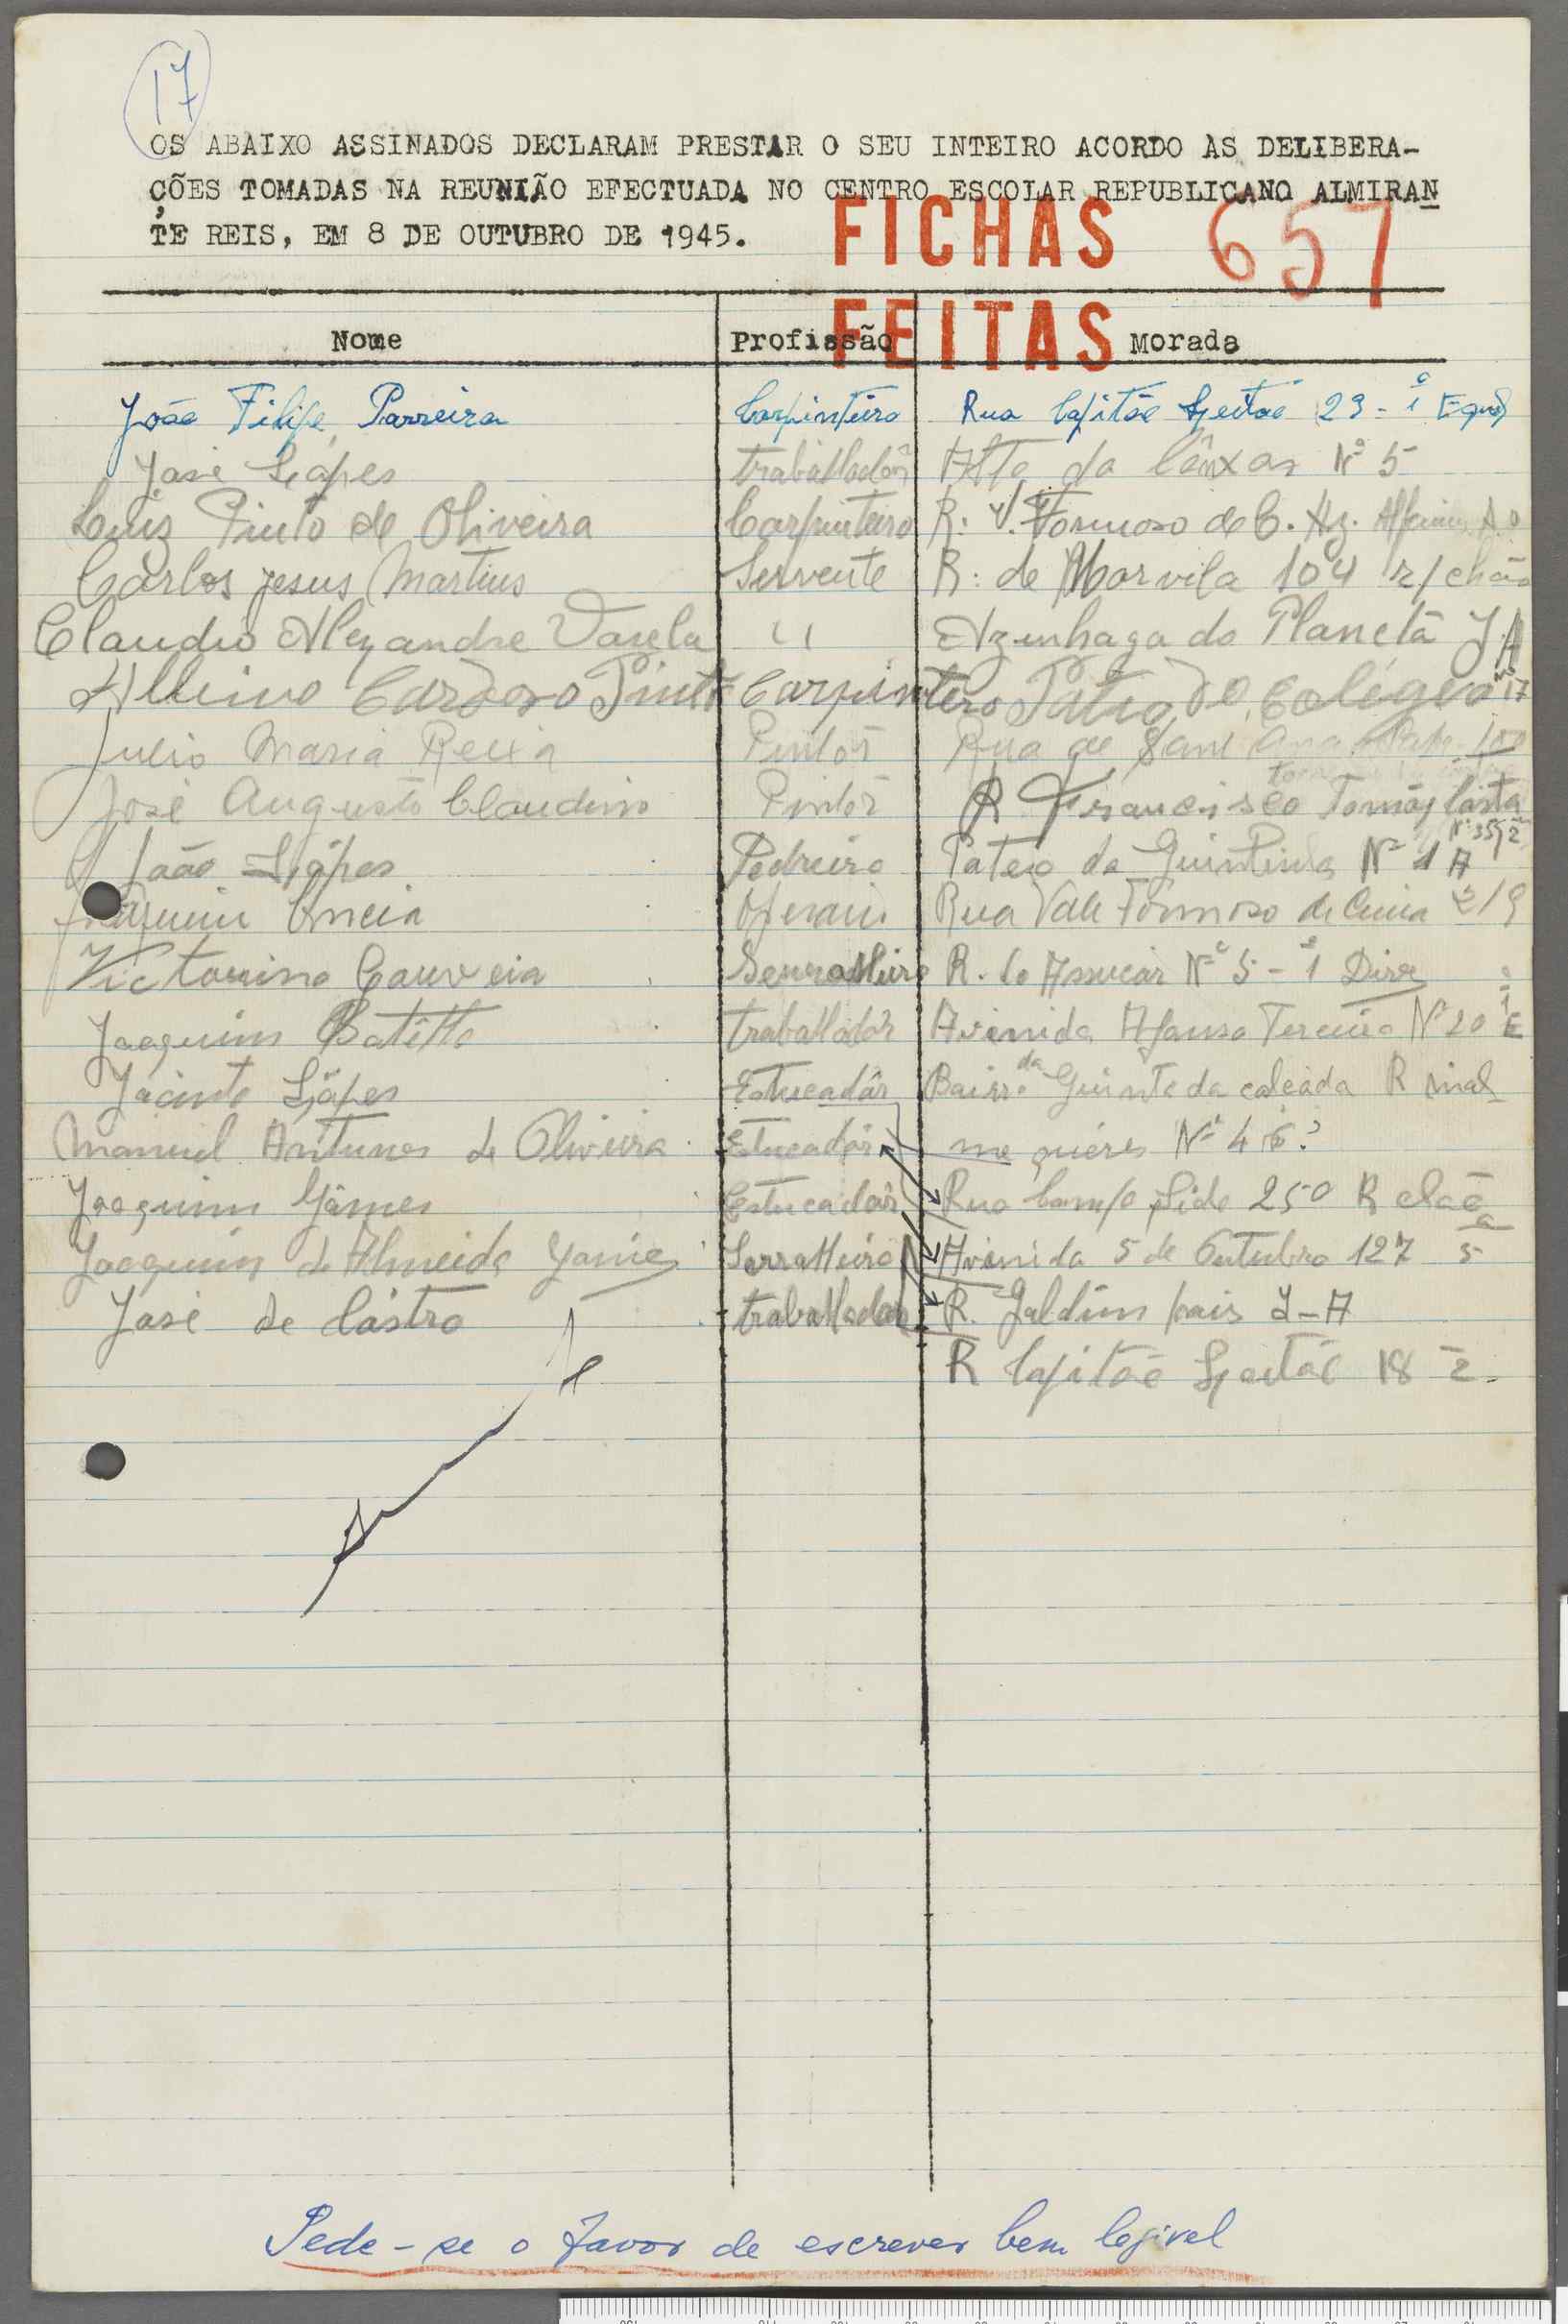 17
OS ABAIXO ASSINADOS DECLARAM PRESTAR O SEU INTEIRO ACORDO ÀS DELIBERA-
ÇÕES TOMADAS NA REUNIÃO EFECTUADA NO CENTRO ESCOLAR REPUBLICANO ALMIRAN
TE REIS, EM 8 DE OUTUBRO DE 1945.
FICHAS 657
FEITAS
Nome Profissão Morada
João Filipe Parreira Carpinteiro Rua Capitão Leitão 29-1º Esqº
José Lopes trabalhadôr Alto da Nº 5
Luiz Pinto de Oliveira Carpinteiro R: V. Formoso de C.
Carlos Jesus Martins Servente R: de Marvila 104 r/chão
Claudio Alexandre Varela " Azinhaga do Planetá J.A
Albino Cardoso Pinto Carpinteiro Pátio do Colégio nº 17
Julio Maria Pintor Rua de Sant Ana 100
José Augusto Claudino Pintôr R Francisco Tomás Costa
Nº 35, 2º
João Lópes Pedreiro Pateo da Nº 1 A
Correia Operario Rua Vale Formoso de Cima 219
Victorino Gouveia Serralheiro R. do Assucar Nº 5-1º Dirº
Joaquim Batista trabalhadôr Avenida Afonso Terceiro Nº 20 1º E
Jacinto Lópes Estucadôr Bairro da Quinta da calcada R mal
Manuel Antunes de Oliveira Estucadôr me quéres Nº 46
Joaquim Gômes Estucadôr Rua Campo Lide 250 R chaõ
Joaquim de Almeida Serralheiro Avenida 5 de Outubro 127 5º
José de Cástro trabalhador R. Galdim pais J-A
R Capitão Leitão 18 2º
Pede-se o favor de escrever bem legivel